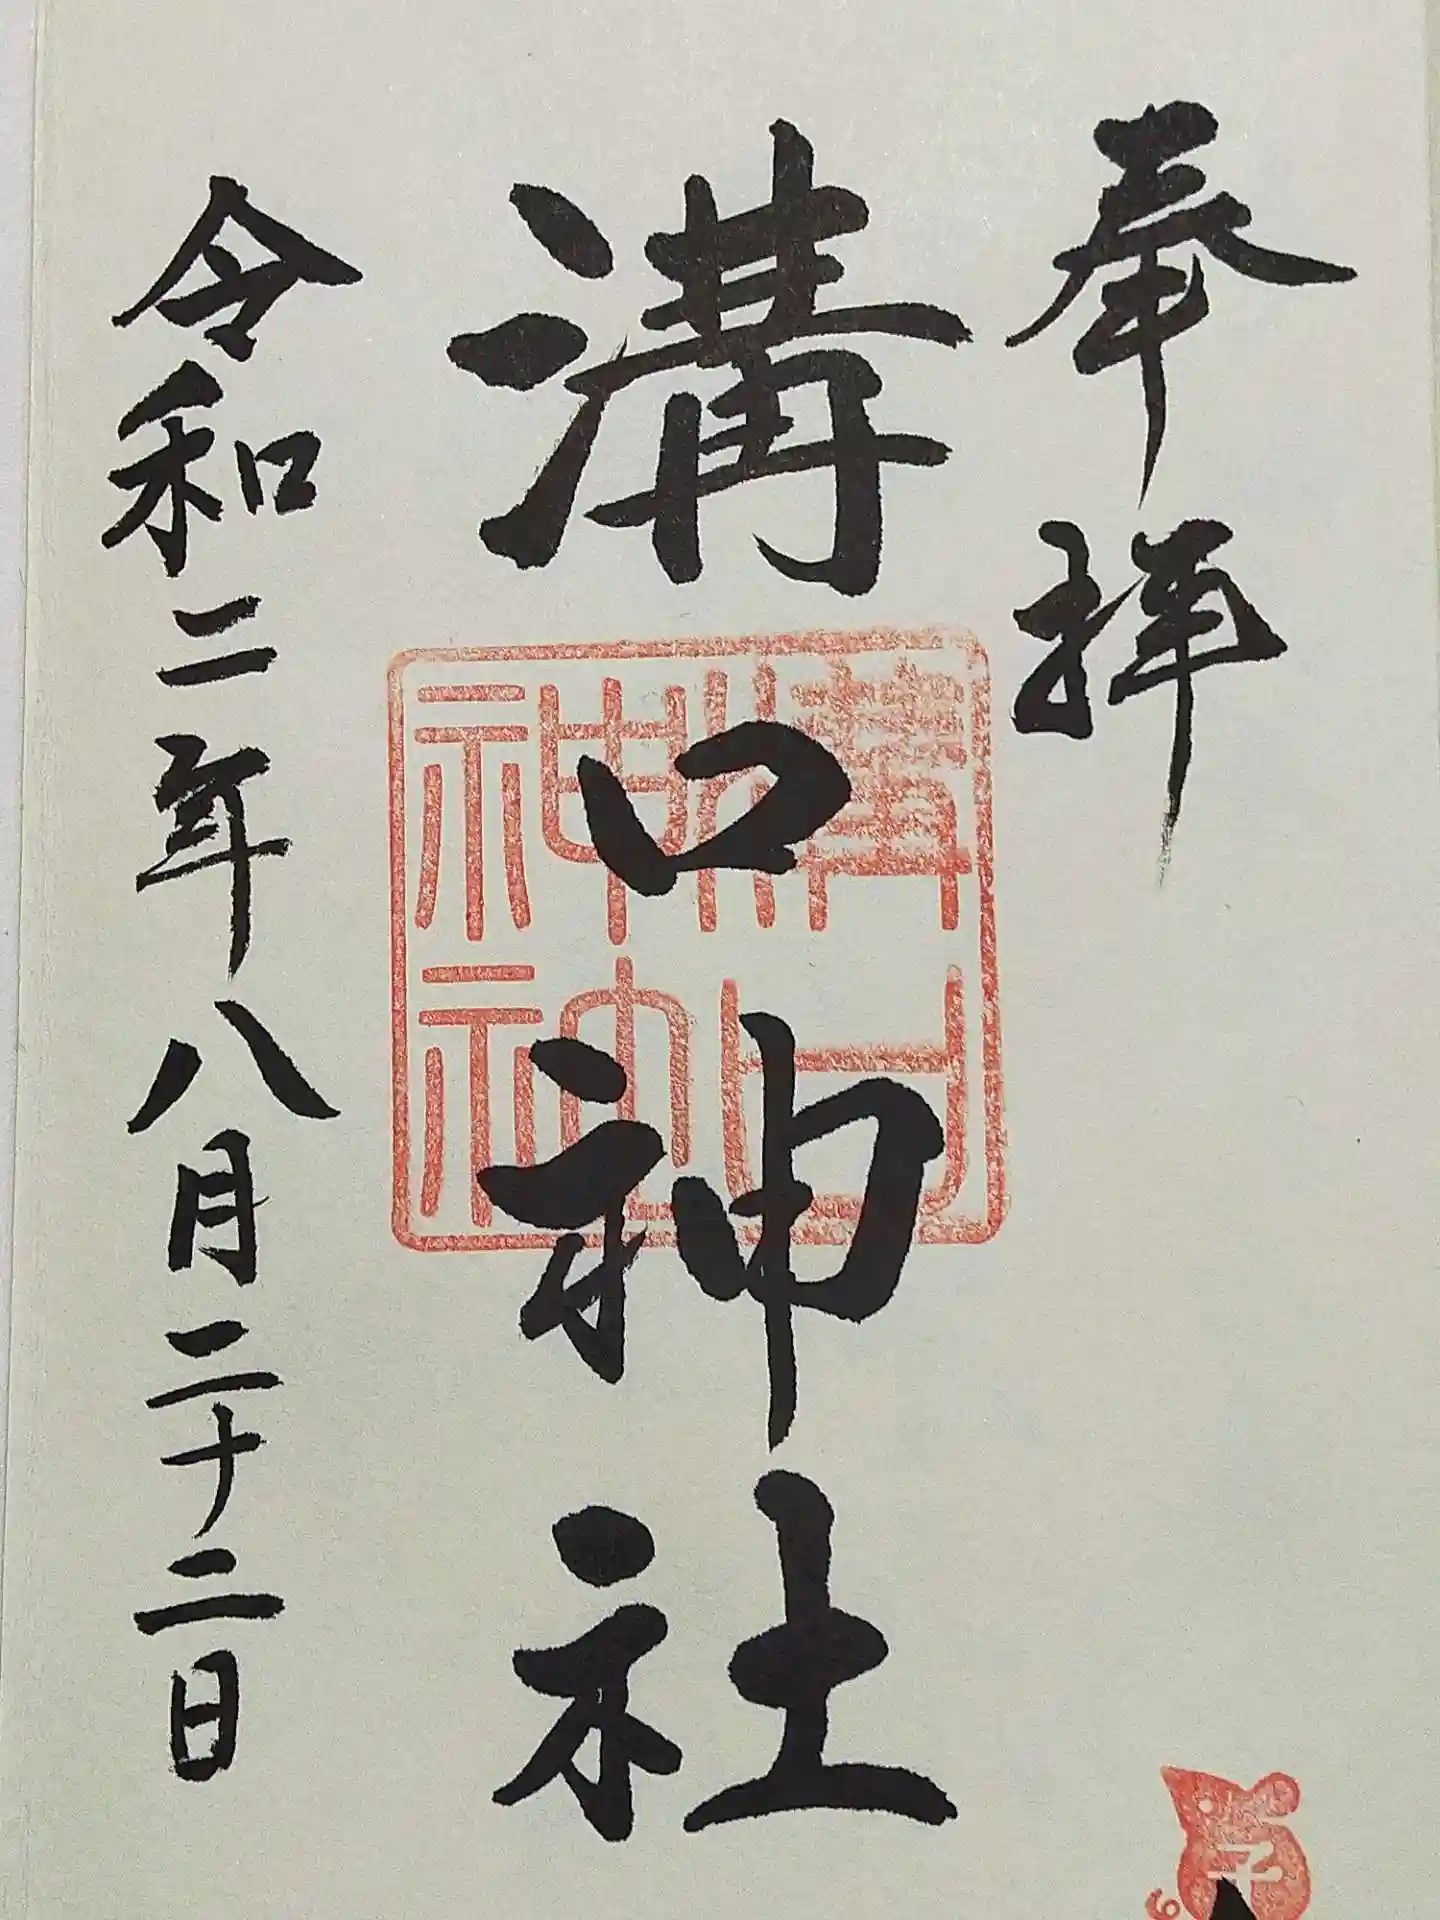 奉拝
溝口神社
溝口神社
令和二年八月二十二日
子